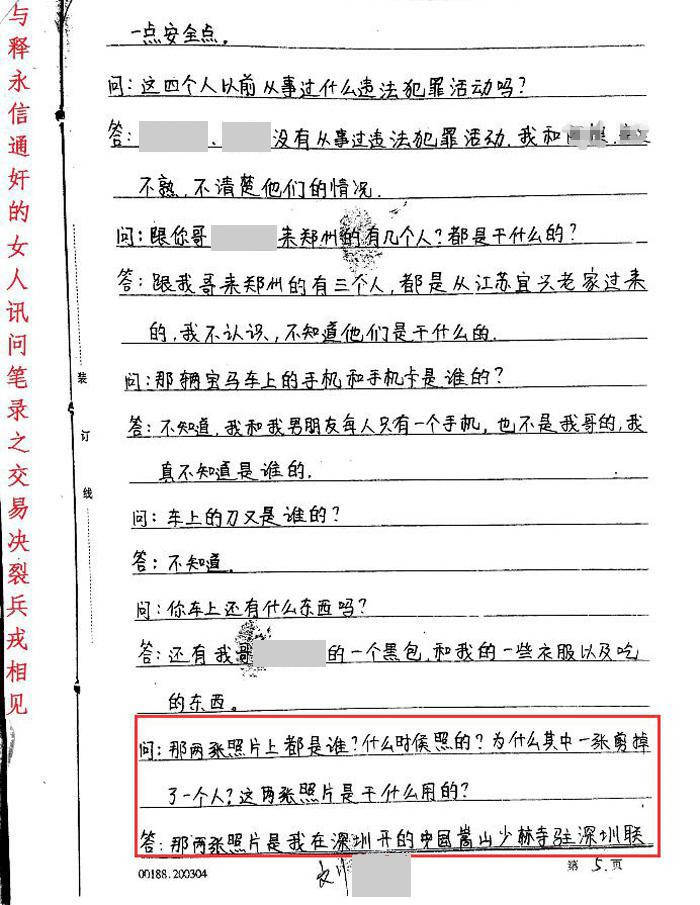 与释永信通奸的女人讯问笔录之交易决裂兵戎相见
装订线
一点安全点。
问:这四个人以前从事过什么违法犯罪活动吗?
答: 、 没有从事过违法犯罪活动.我和
不熟,不清楚他们的情况.
问:跟你哥 来郑州的有几个人?都是干什么的?
答:跟我哥来郑州的有三个人,都是从江苏宜兴老家过来
的,我不认识,不知道他们是干什么的.
问:那辆宝马车上的手机和手机卡是谁的?
答:不知道,我和我男朋友每人只有一个手机,也不是我哥的,我
真不知道是谁的.
问:车上的刀又是谁的?
答:不知道.
问:你车上还有什么东西吗?
答:还有我哥 的一个黑包,和我的一些衣服以及吃
的东西。
问:那两张照片上都是谁?什么时候照的?为什么其中一张剪掉
了一个人?这两张照片是干什么用的?
答:那两张照片是我在深圳开的中國嵩山少林寺驻深圳联
00188.200304
第5.页